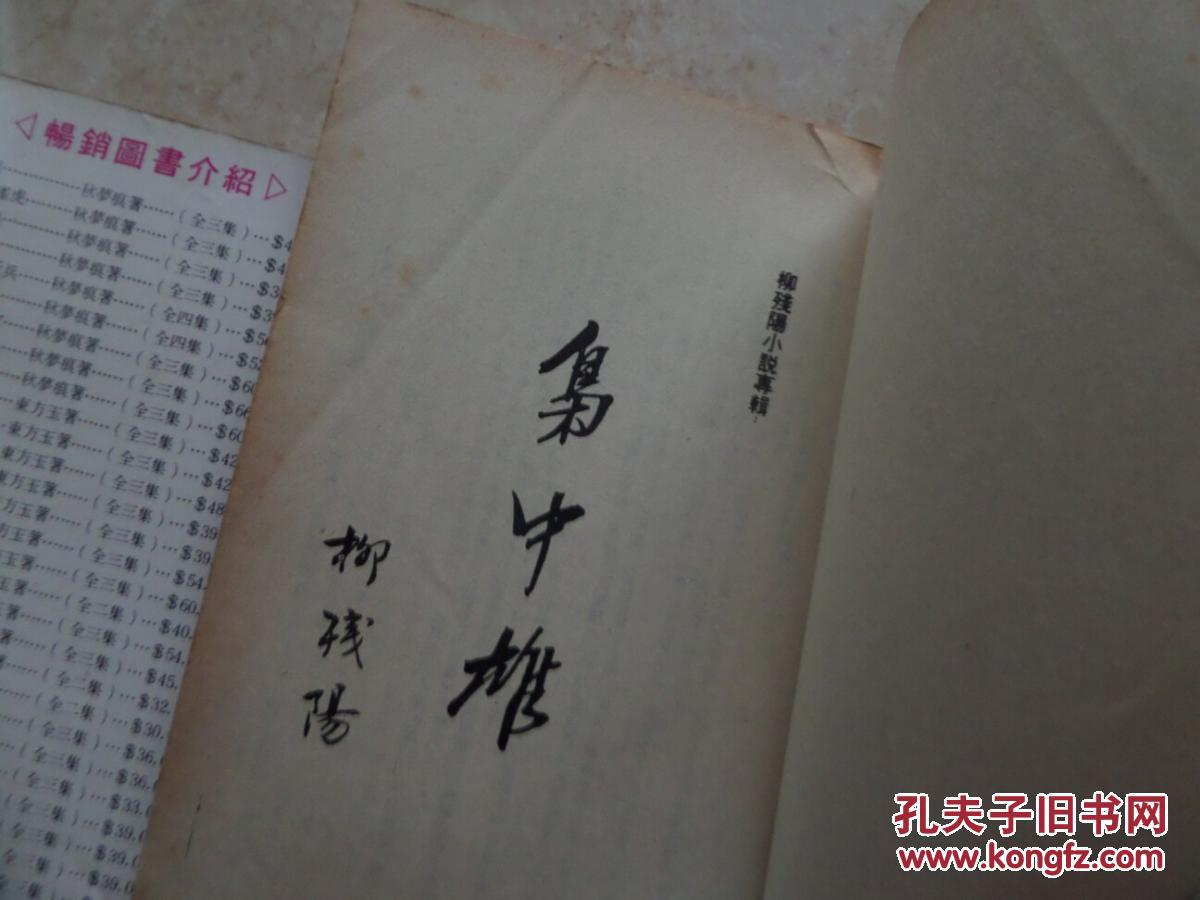 ◁暢銷圖書介紹▷
秋夢痕著……(全三集)…$4
秋夢痕著……(全三集)…$4
秋夢痕著……(全三集)…$3
秋夢痕著……(全三集)…$3
兵……秋夢痕著……(全四集)…$5
秋夢痕著……(全四集)…$52
秋夢痕著……(全三集)…$60
秋夢痕著……(全三集)…$66
秋夢痕著……(全三集)…$60
東方玉著……(全三集)…$42
東方玉著……(全三集)…$42
東方玉著……(全三集)…$48
東方玉著……(全三集)…$39
方玉著……(全三集)…$39
方玉著……(全三集)…$54.
玉著……(全三集)…$60.
玉著……(全二集)…$40.
著……(全三集)…$54.
著……(全三集)…$45.
(全二集)…$32.
(全二集)…$30.
(全三集)…$36.
(全三集)…$36.
(全三集)…$33.
(全三集)…$39.
(全三集)…$39.
(全三集)…$39.
柳殘陽小説專輯:
梟中雄
柳殘陽
孔夫子旧书网
www.kongfz.com